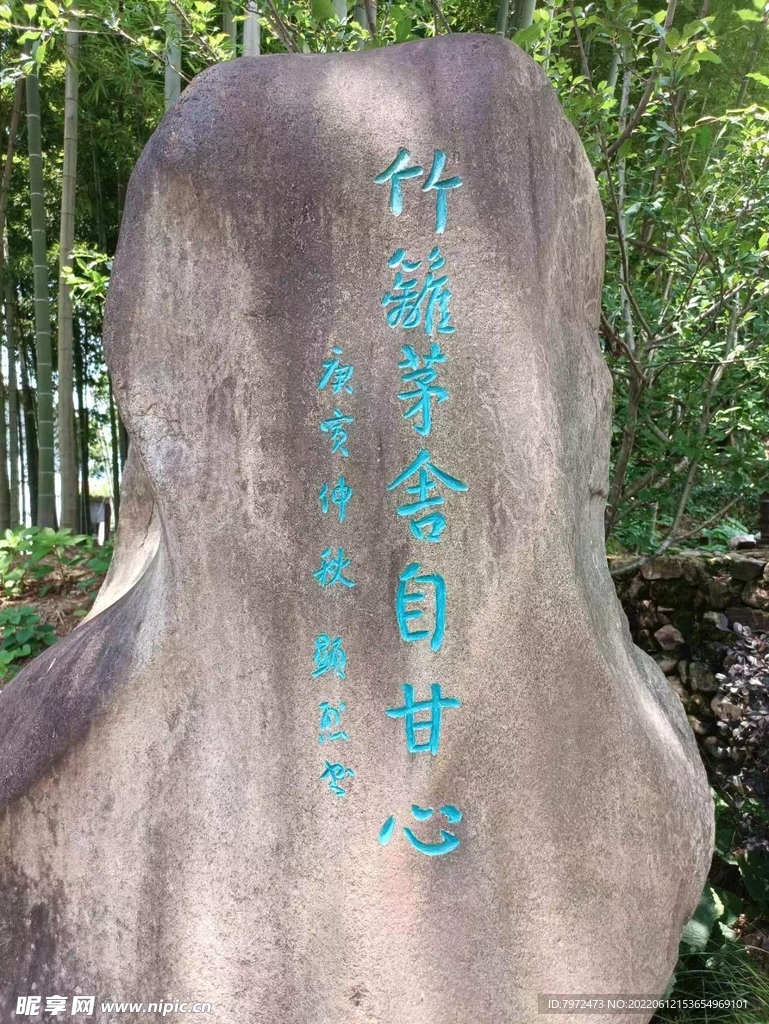 竹籬茅舍自甘心
庚寅仲秋 顯烈书
昵享网 www.nipic.cn
ID:7972473 NO:20220612153654969101